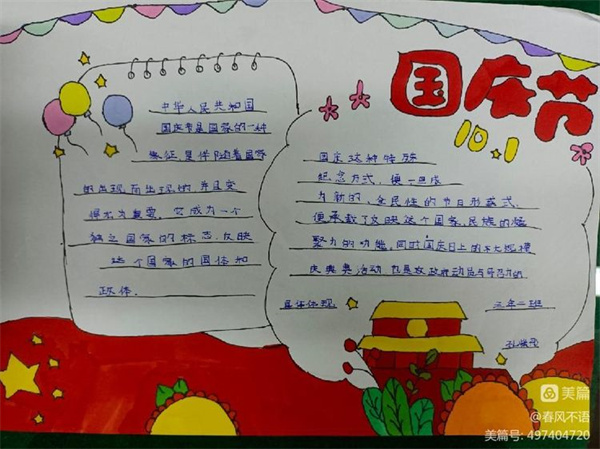 国庆节
10.1
中华人民共和国
国庆节是国家的一种
象征是伴随着国家
的出现而出现的并且变
得尤为重要。它成为一个
独立国家的标志，反映
这个国家的国体和
政体.
国庆这种特殊
纪念方式，便一旦成
为新的、全民性的节日形式,
便承载了反映这个国家、民族的凝
聚力的功能。同时国庆日上的大规模
庆典活动 也是政府动员与号召力的
具体体现
三年二班
美篇
@春风不语
美篇号: 497404720